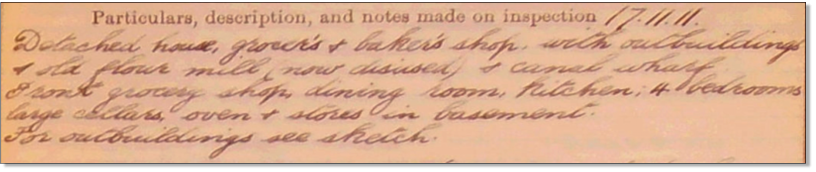 Particulars, description, and notes made on inspection 17.11.11.
Detached house, grocer's & baker's shop, with outbuildings
& old flour mill (now disused) & canal wharf
Front grocery shop, dining room, kitchen; 4 bedrooms
large cellars, oven & stores in basement.
For outbuildings see sketch.